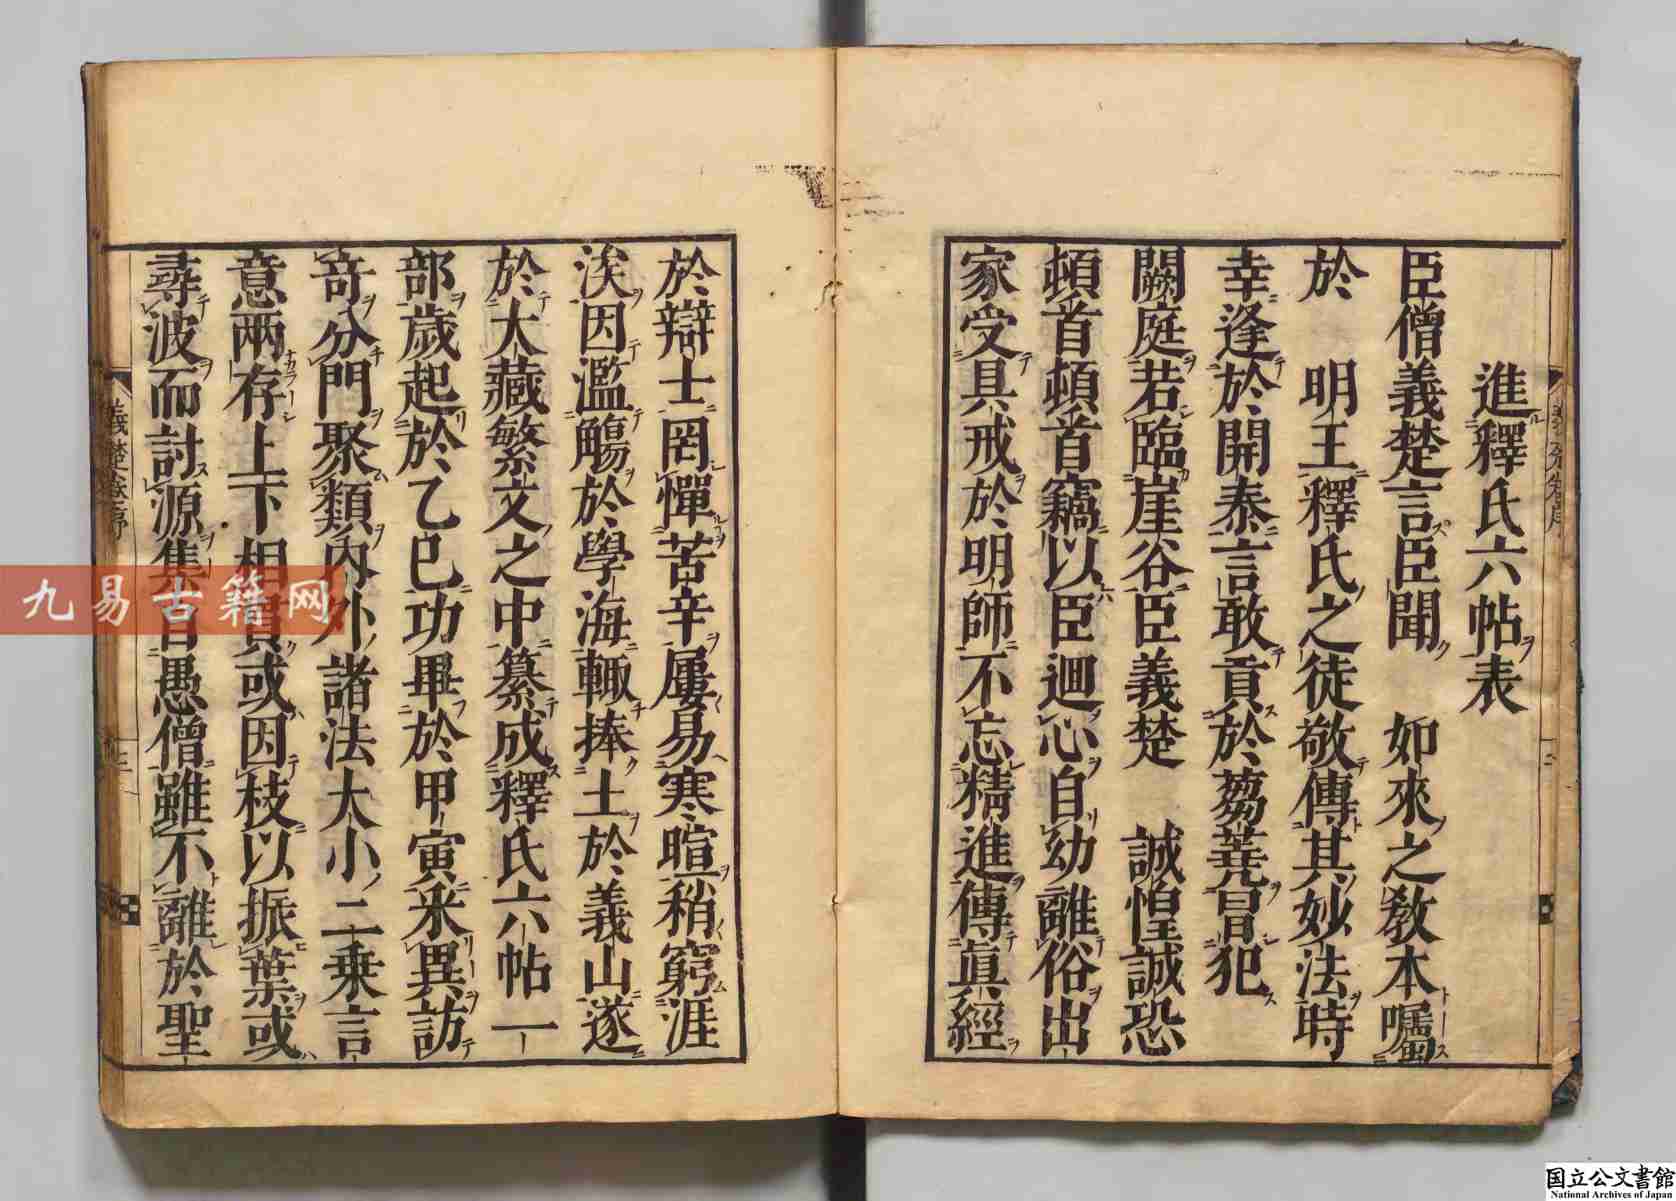 進釋氏六帖表
臣僧義楚言臣聞　如來之教本囑
於　明王釋氏之徒敬傳其妙法時
幸逢於開泰言敢貢於芻蕘冒犯
闕庭若臨崖谷臣義楚　誠惶誠恐
頓首頓首竊以臣迴心自幼離俗出
家受具戒於明師不忘精進傳真經
於辯士罔憚苦辛屢易寒暄稍窮涯
涘因濫觴於學海輙捧土於義山遂
於大藏繁文之中纂成釋氏六帖一
部歲起於乙巳功畢於甲寅采異訪
奇分門聚類內外諸法大小二乘言
意兩存上下相貫或因枝以振葉或
尋波而討源集自愚僧雖不離於聖
九易古籍网
国立公文書館
National Archives of Japan